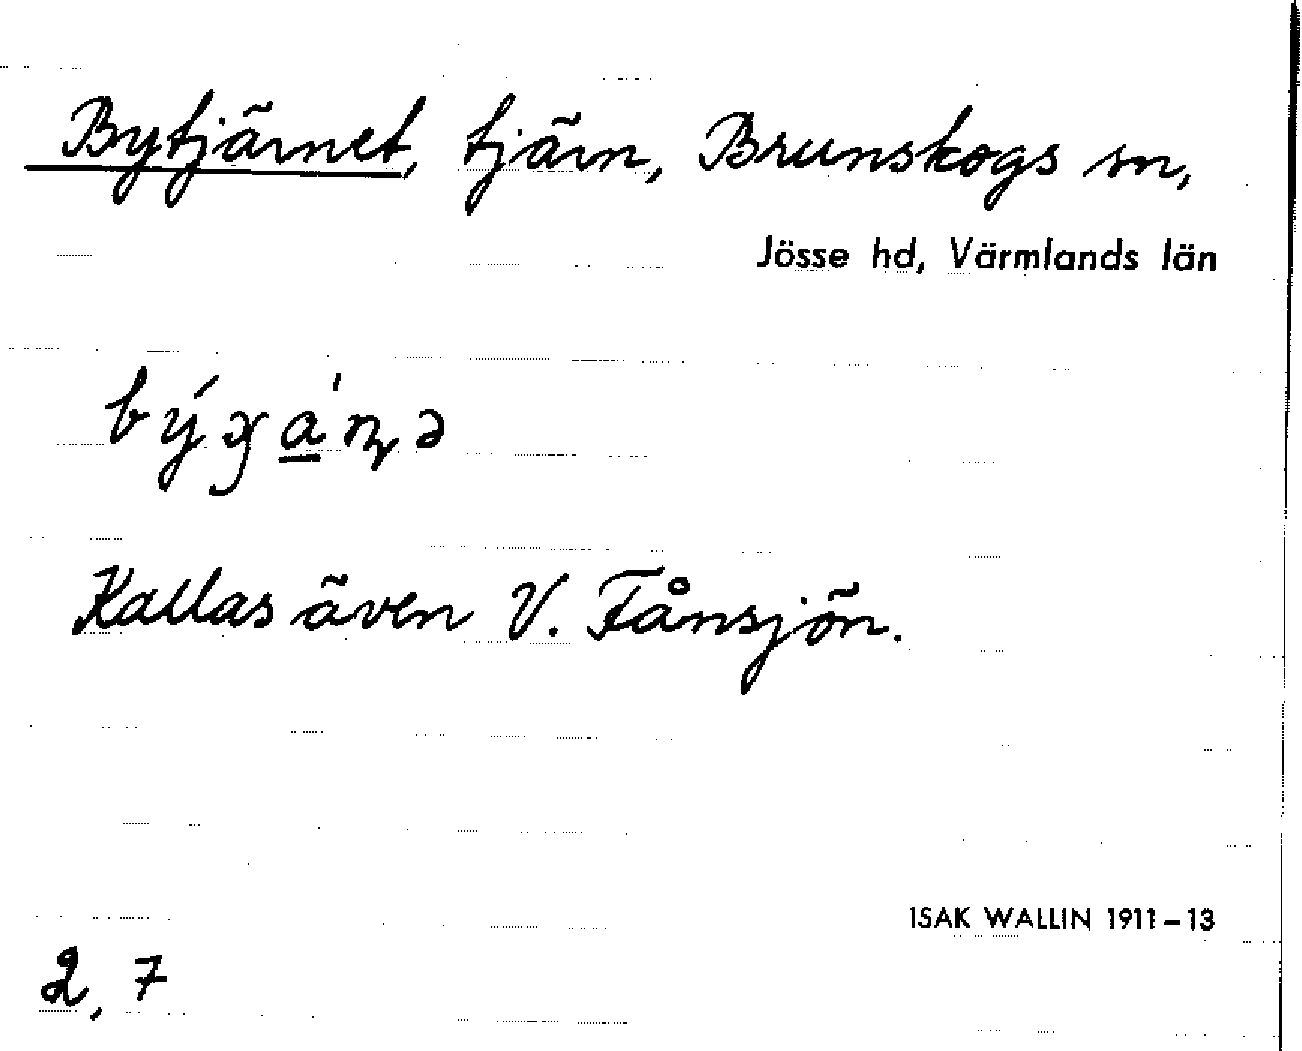 Bytjärnet, tjärn, Brunskogs sn,
Jösse hd, Värmlands län
Kallas även V. Fånsjön.
ISAK WALLIN 1911–13
2, 7